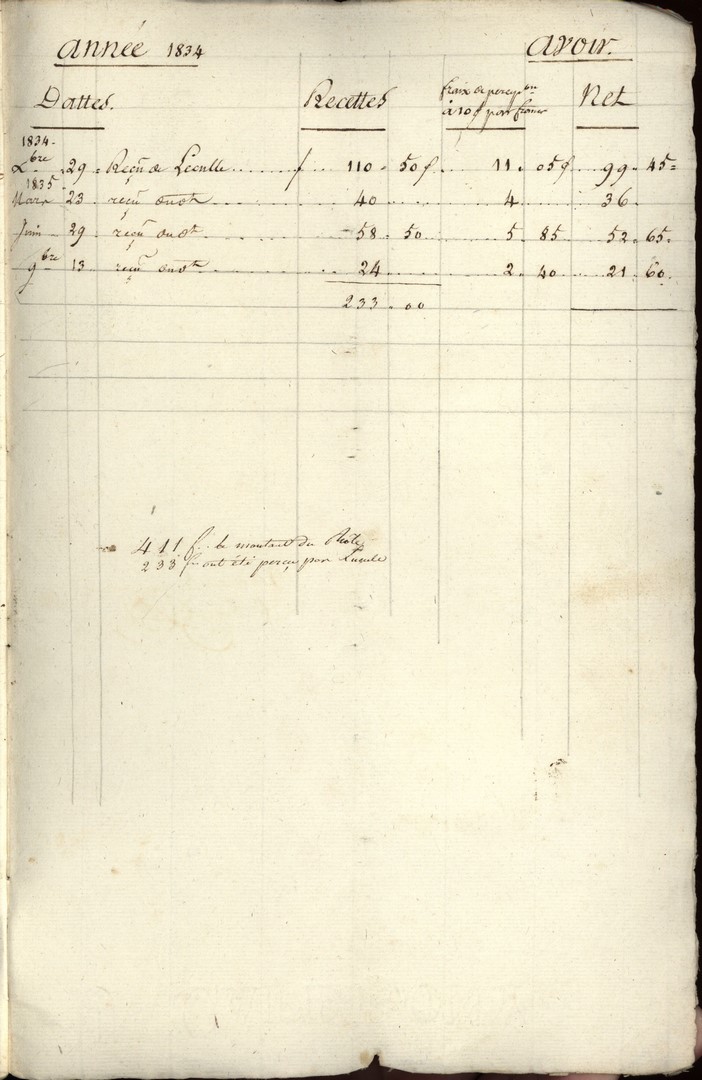 année 1834 avoir.
Dattes. Recettes fraix de percep.on à 10 f pour Net
1834.
Xbre 29 Reçu de Leculle 110 50 f 11 05 f 99 45
1835
Mars 23 reçu 40 4 36
Juin 29 reçu 58 50 5 85 52 65
9bre 13 reçu 24 2 40 21 60
233 00
411 f le montant du Rôle
233 f ont été perçu par